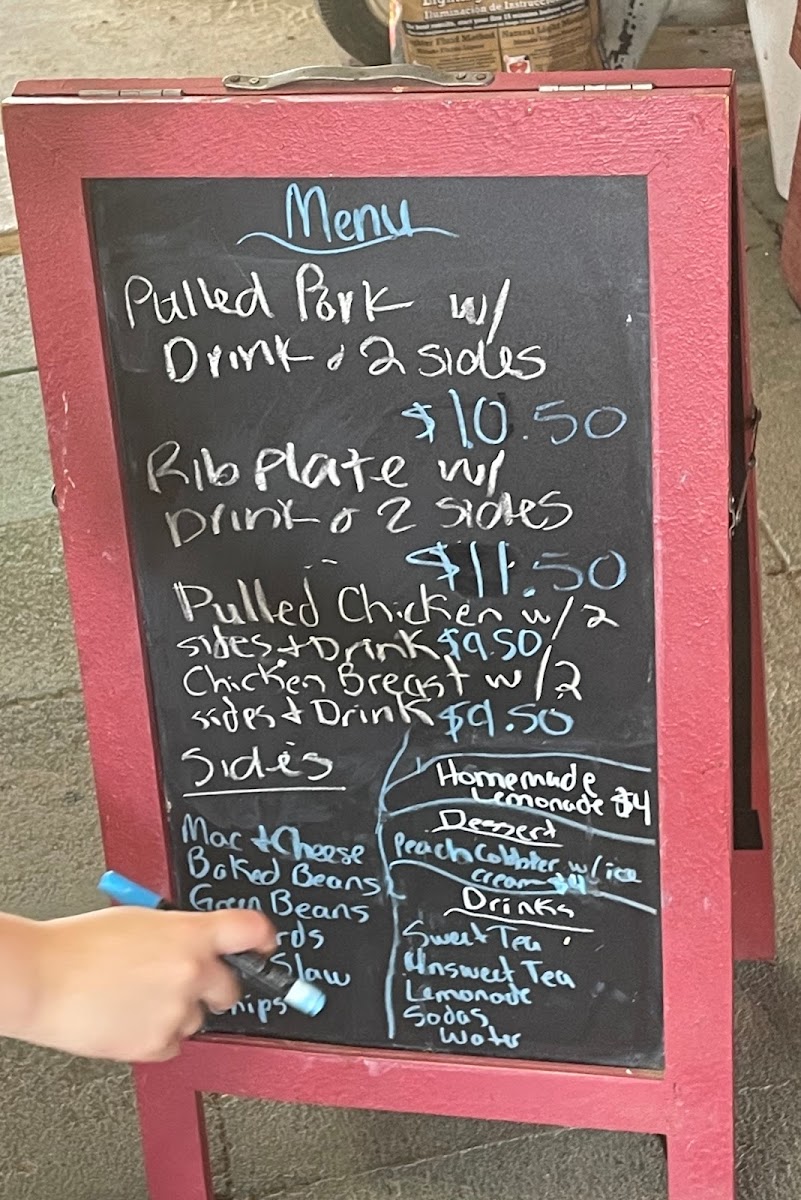 Iluminación de Instrucci
Fluid Method
Natural Light
Menu
Pulled Pork w/
Drink & 2 sides
$10.50
Rib Plate w/
Drink & 2 sides
$11.50
Pulled Chicken w/2
sides + Drink $9.50
Chicken Breast w/2
sides + Drink $9.50
Sides
Mac + Cheese
Baked Beans
Green Beans
rds
Slaw
hips
Homemade
Lemonade $4
Dessert
Peach Cobbler w/ice
cream $4
Drinks
Sweet Tea
Unsweet Tea
Lemonade
Sodas
Water